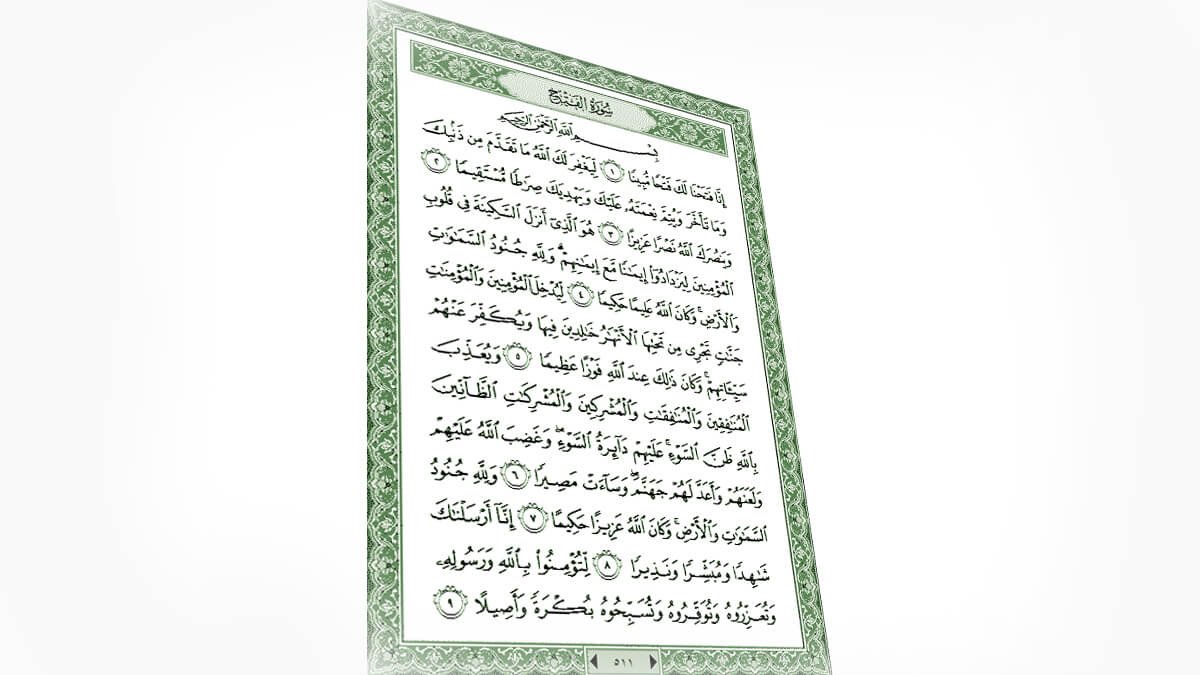 سُورَةُ الفَتْحِ
بِسْمِ ٱللَّهِ ٱلرَّحْمَٰنِ ٱلرَّحِيمِ
إِنَّا فَتَحْنَا لَكَ فَتْحًا مُّبِينًا ١ لِّيَغْفِرَ لَكَ ٱللَّهُ مَا تَقَدَّمَ مِن ذَنۢبِكَ
وَمَا تَأَخَّرَ وَيُتِمَّ نِعْمَتَهُۥ عَلَيْكَ وَيَهْدِيَكَ صِرَٰطًا مُّسْتَقِيمًا ٢
وَيَنصُرَكَ ٱللَّهُ نَصْرًا عَزِيزًا ٣ هُوَ ٱلَّذِىٓ أَنزَلَ ٱلسَّكِينَةَ فِى قُلُوبِ
ٱلْمُؤْمِنِينَ لِيَزْدَادُوٓا۟ إِيمَٰنًا مَّعَ إِيمَٰنِهِمْ ۗ وَلِلَّهِ جُنُودُ ٱلسَّمَٰوَٰتِ
وَٱلْأَرْضِ ۚ وَكَانَ ٱللَّهُ عَلِيمًا حَكِيمًا ٤ لِّيُدْخِلَ ٱلْمُؤْمِنِينَ وَٱلْمُؤْمِنَٰتِ
جَنَّٰتٍ تَجْرِى مِن تَحْتِهَا ٱلْأَنْهَٰرُ خَٰلِدِينَ فِيهَا وَيُكَفِّرَ عَنْهُمْ
سَيِّـَٔاتِهِمْ ۚ وَكَانَ ذَٰلِكَ عِندَ ٱللَّهِ فَوْزًا عَظِيمًا ٥ وَيُعَذِّبَ
ٱلْمُنَٰفِقِينَ وَٱلْمُنَٰفِقَٰتِ وَٱلْمُشْرِكِينَ وَٱلْمُشْرِكَٰتِ ٱلظَّآنِّينَ
بِٱللَّهِ ظَنَّ ٱلسَّوْءِ ۚ عَلَيْهِمْ دَآئِرَةُ ٱلسَّوْءِ ۖ وَغَضِبَ ٱللَّهُ عَلَيْهِمْ
وَلَعَنَهُمْ وَأَعَدَّ لَهُمْ جَهَنَّمَ ۖ وَسَآءَتْ مَصِيرًا ٦ وَلِلَّهِ جُنُودُ
ٱلسَّمَٰوَٰتِ وَٱلْأَرْضِ ۚ وَكَانَ ٱللَّهُ عَزِيزًا حَكِيمًا ٧ إِنَّآ أَرْسَلْنَٰكَ
شَٰهِدًا وَمُبَشِّرًا وَنَذِيرًا ٨ لِّتُؤْمِنُوا۟ بِٱللَّهِ وَرَسُولِهِۦ
وَتُعَزِّرُوهُ وَتُوَقِّرُوهُ وَتُسَبِّحُوهُ بُكْرَةً وَأَصِيلًا ٩
٥١١